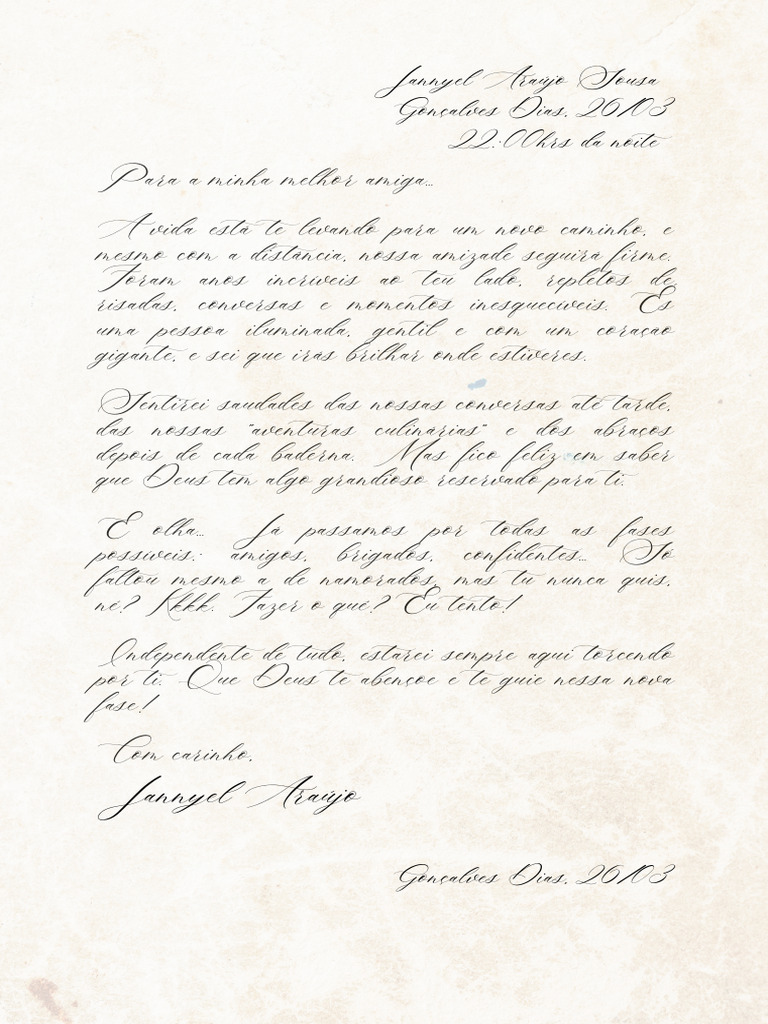 Jannyel Araújo Sousa
Gonçalves Dias, 26/03
22:00hrs da noite
Para a minha melhor amiga...
A vida está te levando para um novo caminho, e
mesmo com a distância, nossa amizade seguirá firme.
Foram anos incríveis ao teu lado, repletos de
risadas, conversas e momentos inesquecíveis. És
uma pessoa iluminada, gentil e com um coração
gigante, e sei que irás brilhar onde estiveres.
Sentirei saudades das nossas conversas até tarde,
das nossas "aventuras culinárias" e dos abraços
depois de cada baderna. Mas fico feliz em saber
que Deus tem algo grandioso reservado para ti.
E olha... Já passamos por todas as fases
possíveis: amigos, brigados, confidentes... Só
faltou mesmo a de namorados, mas tu nunca quis,
né? Kkkk. Fazer o quê? Eu tento!
Independente de tudo, estarei sempre aqui torcendo
por ti. Que Deus te abençoe e te guie nessa nova
fase!
Com carinho,
Jannyel Araújo
Gonçalves Dias, 26/03